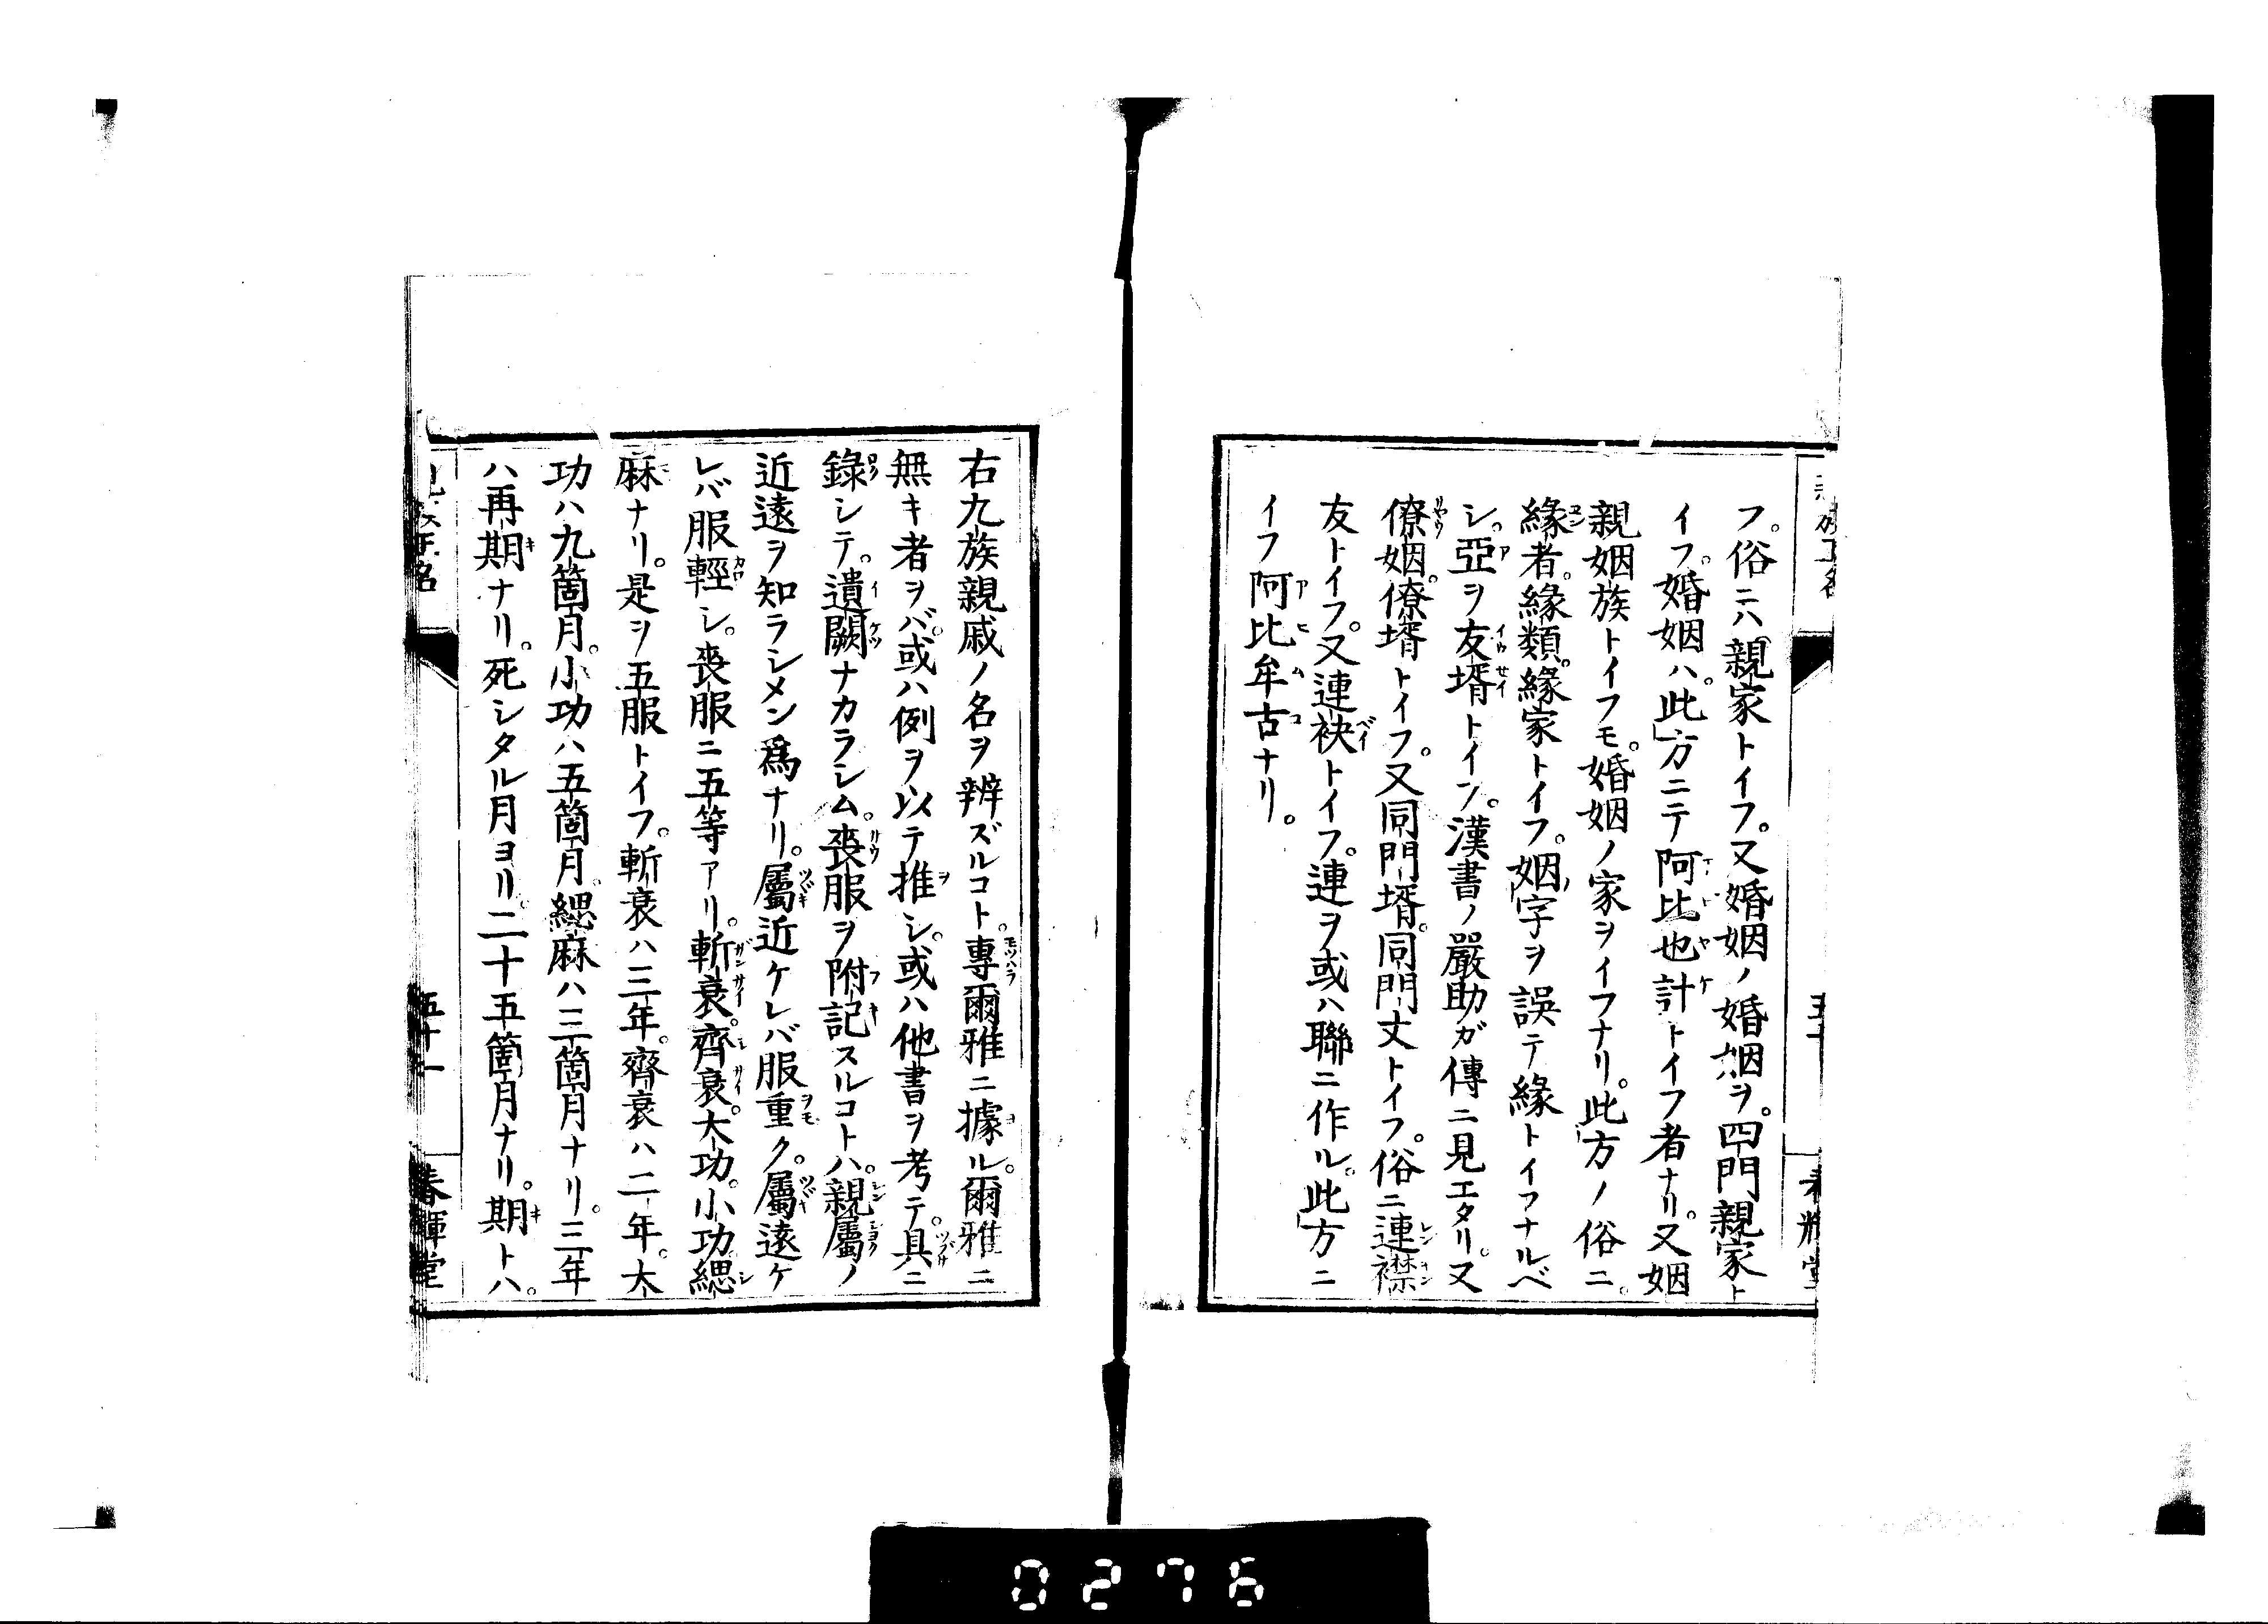 フ。俗ニハ親家トイフ。又婚姻ノ婚姻ヲ。四門親家ト
イフ。婚姻ハ。此方ニテ阿比也計トイフ者ナリ。又姻
親姻族トイフモ。婚姻ノ家ヲイフナリ。此方ノ俗ニ。
緣者。緣類。緣家トイフ。姻字ヲ誤テ緣トイフナルベ
シ。亞ヲ友壻トイフ。漢書ノ嚴助ガ傳ニ見エタリ。又
僚姻。僚壻トイフ。又同門壻。同門丈トイフ。俗ニ連襟
友トイフ。又連袂トイフ。連ヲ或ハ聯ニ作ル。此方ニ
イフ阿比牟古ナリ。
五十
右九族親戚ノ名ヲ辨ズルコト。專爾雅ニ據ル。爾雅ニ
無キ者ヲバ。或ハ例ヲ以テ推シ。或ハ他書ヲ考テ。具ニ
錄シテ。遺闕ナカラシム。喪服ヲ附記スルコトハ。親屬ノ
近遠ヲ知ラシメン爲ナリ。屬近ケレバ服重ク。屬遠ケ
レバ服輕シ。喪服ニ五等アリ。斬衰。齊衰。大功。小功。緦
麻ナリ。是ヲ五服トイフ。斬衰ハ三年。齊衰ハ二年。大
功ハ九箇月。小功ハ五箇月。緦麻ハ三箇月ナリ。三年
ハ再期ナリ。死シタル月ヨリ。二十五箇月ナリ。期トハ。
五十一
春暉堂
0276